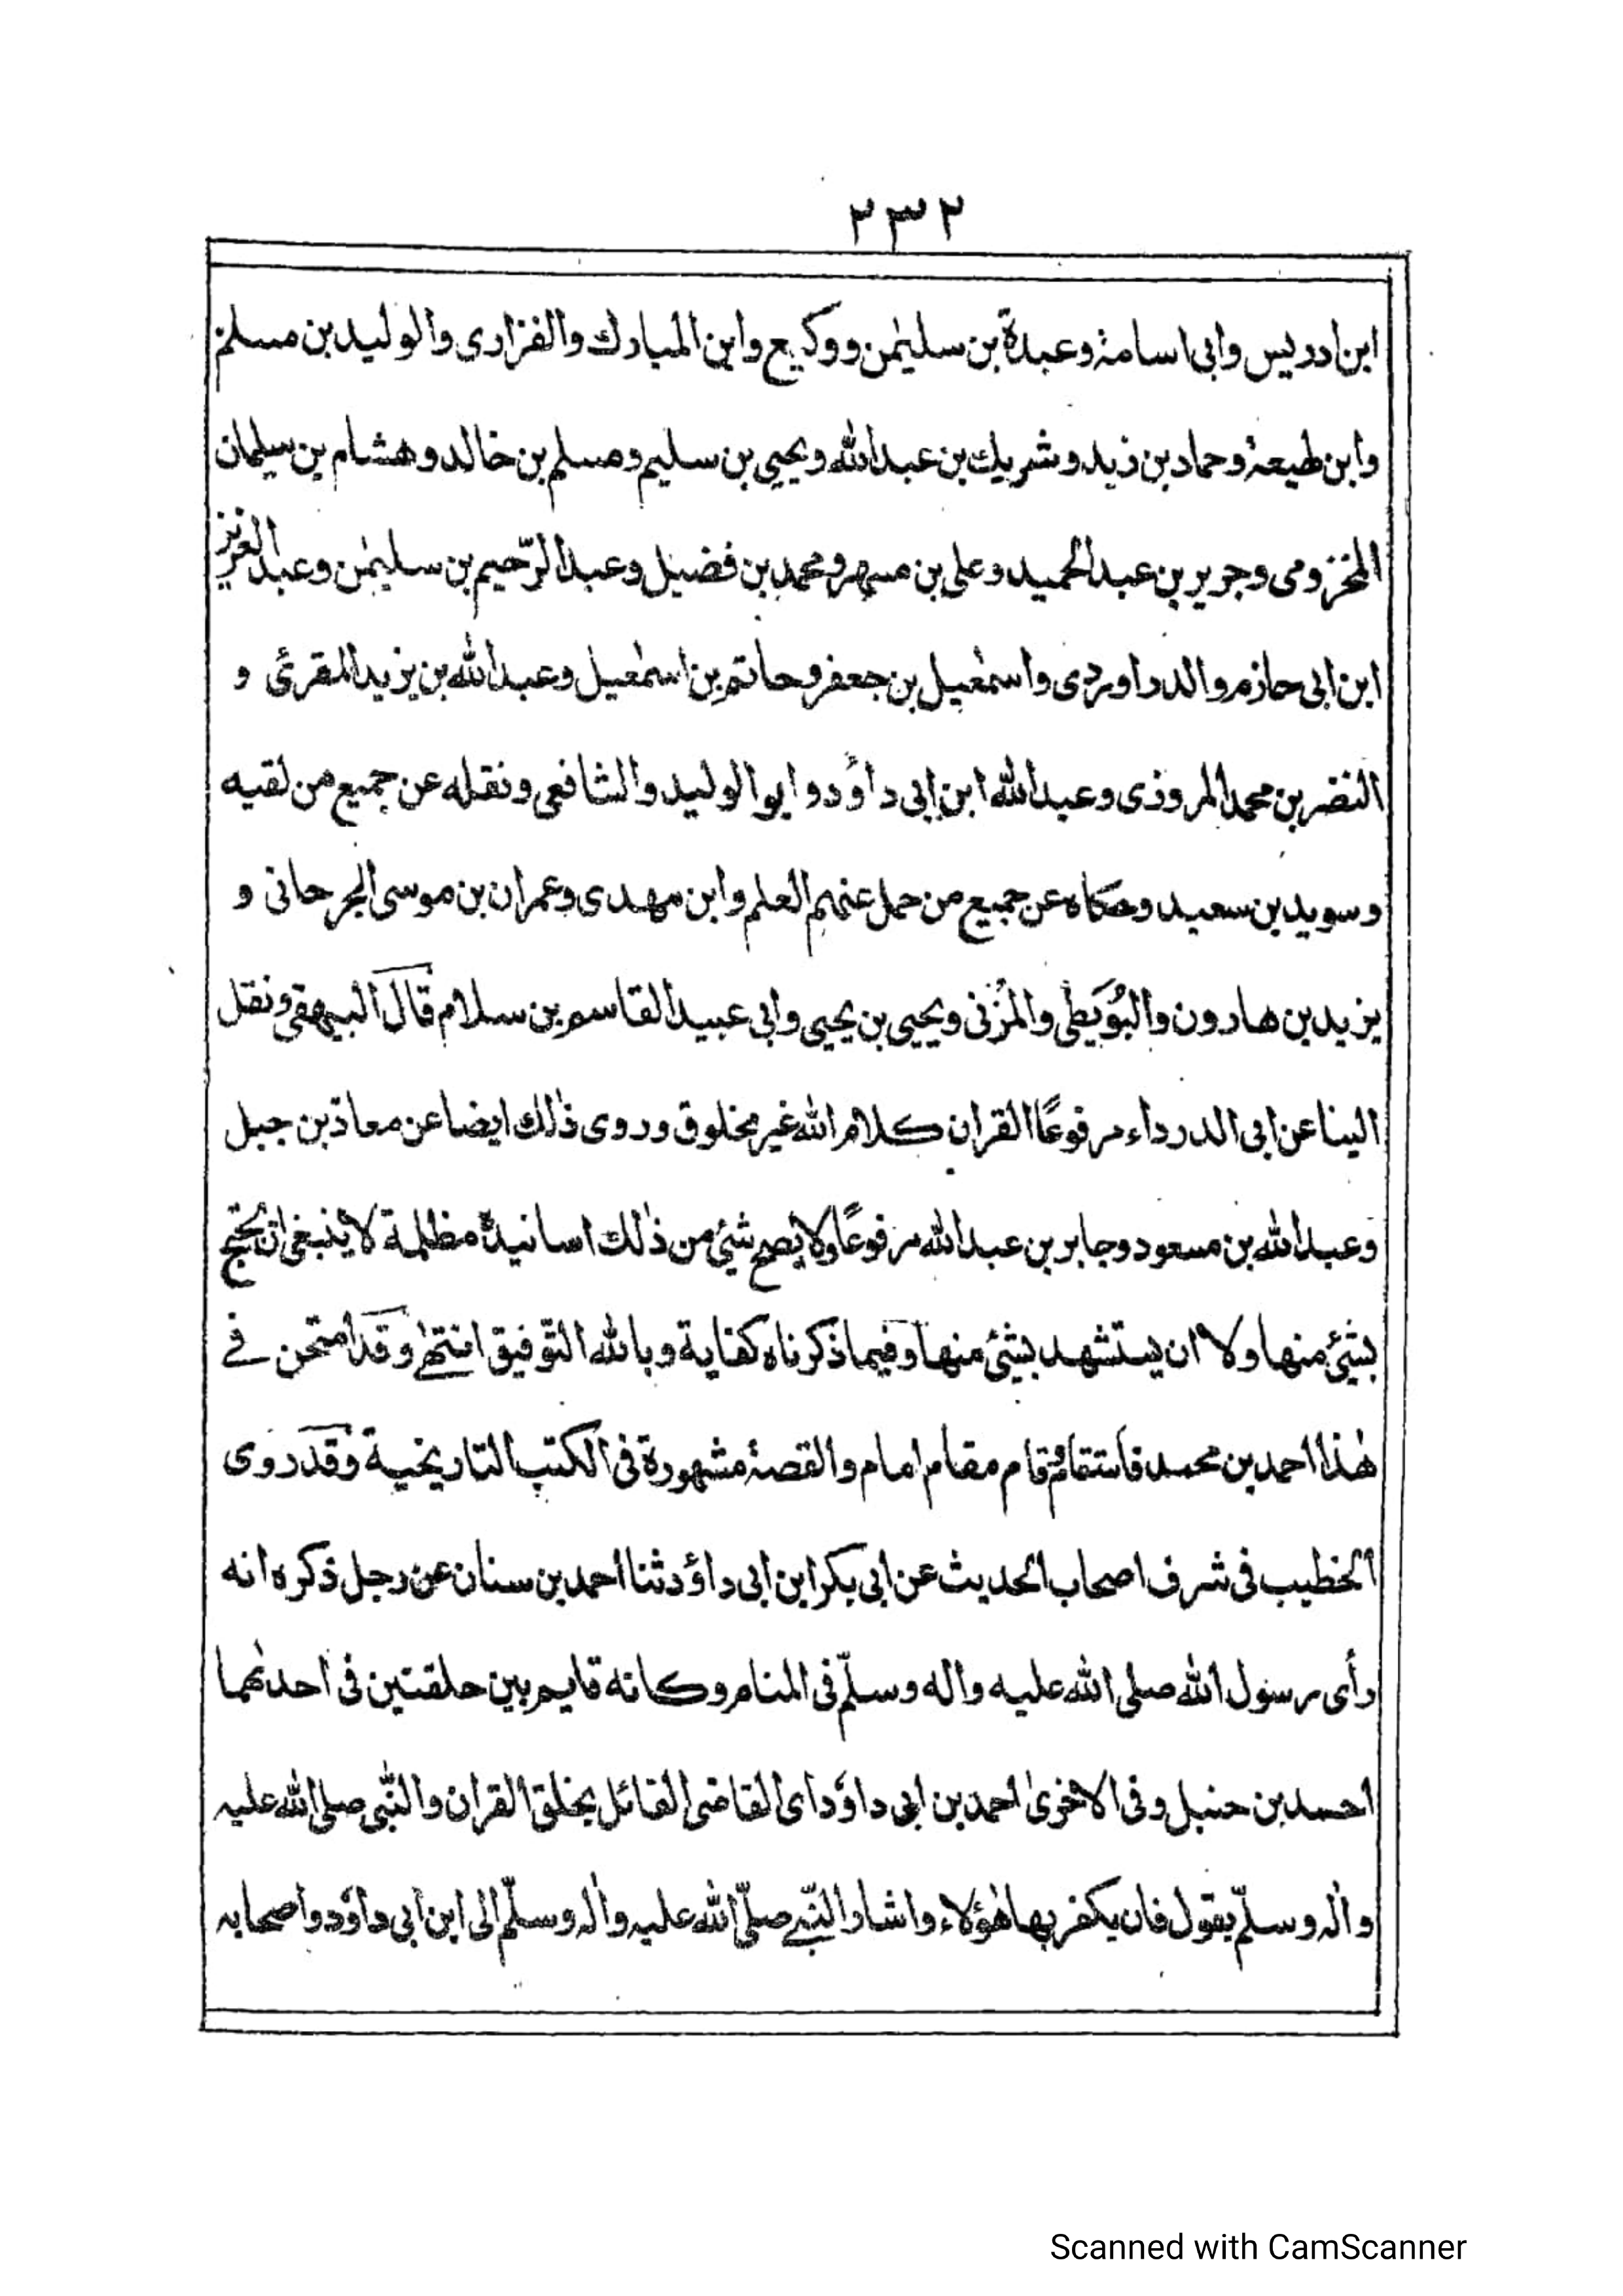 ٢٣٢
ابن ادريس وابى اسامة وعبدة بن سليمٰن ووكيع وابن المبارك والفزارى والوليد بن مسلم
وابن طيعة وحماد بن زيد وشريك بن عبد الله ويحيي بن سليم ومسلم بن خالد وهشام بن سليمان
المخزومى وجرير بن عبد الحميد وعلى بن مسهر ومحمد بن فضيل وعبد الرّحيم بن سليمٰن وعبد العزيز
ابن ابى حازم والدراوردى واسمٰعيل بن جعفر وحاتم بن اسمٰعيل وعبد الله بن يزيد المقرئ و
النضر بن محمد المروزى وعبد الله ابن ابى داؤد وابو الوليد والشافعى ونقله عن جميع من لقيه
وسويد بن سعيد وحكاه عن جميع من حمل عنهم العلم وابن مهدى وعمران بن موسى الجرحانى و
يزيد بن هارون والبُوَيطى والمُزنى ويحيي بن يحيي وابى عبيد القاسم بن سلام قال البيهقى ونقل
الينا عن ابى الدرداء مرفوعًا القران كلام الله غير مخلوق وروى ذٰلك ايضا عن معاذ بن جبل
وعبد الله بن مسعود وجابر بن عبد الله مرفوعًا ولا يصح شئ من ذٰلك اسانيده مظلمة لا ينبغى ان يحتج
بشئ منها ولا ان يستشهد بشئ منها وفيما ذكرناه كفاية وبالله التّوفيق انتهٰى وقد امتحن فے
هٰذا احمد بن محمد فاستقام وقام مقام امام والقصة مشهورة فى الكتب التاريخية وقد روى
الخطيب فى شرف اصحاب الحديث عن ابى بكر ابن ابى داؤد ثنا احمد بن سنان عن رجل ذكره انه
رأى رسول الله صلى الله عليه واله وسلّم فى المنام وكانه قايم بين حلقتين فى احدٰهما
احمد بن حنبل وفى الاخرىٰ احمد بن ابى داؤد اى القاضى القائل بخلق القران والنّبى صلى الله عليه
واٰله وسلّم يقول فان يكفر بها هٰؤلاء واشار النّبے صلّى الله عليه واٰله وسلّم الى ابن ابى داؤد واصحابه
Scanned with CamScanner